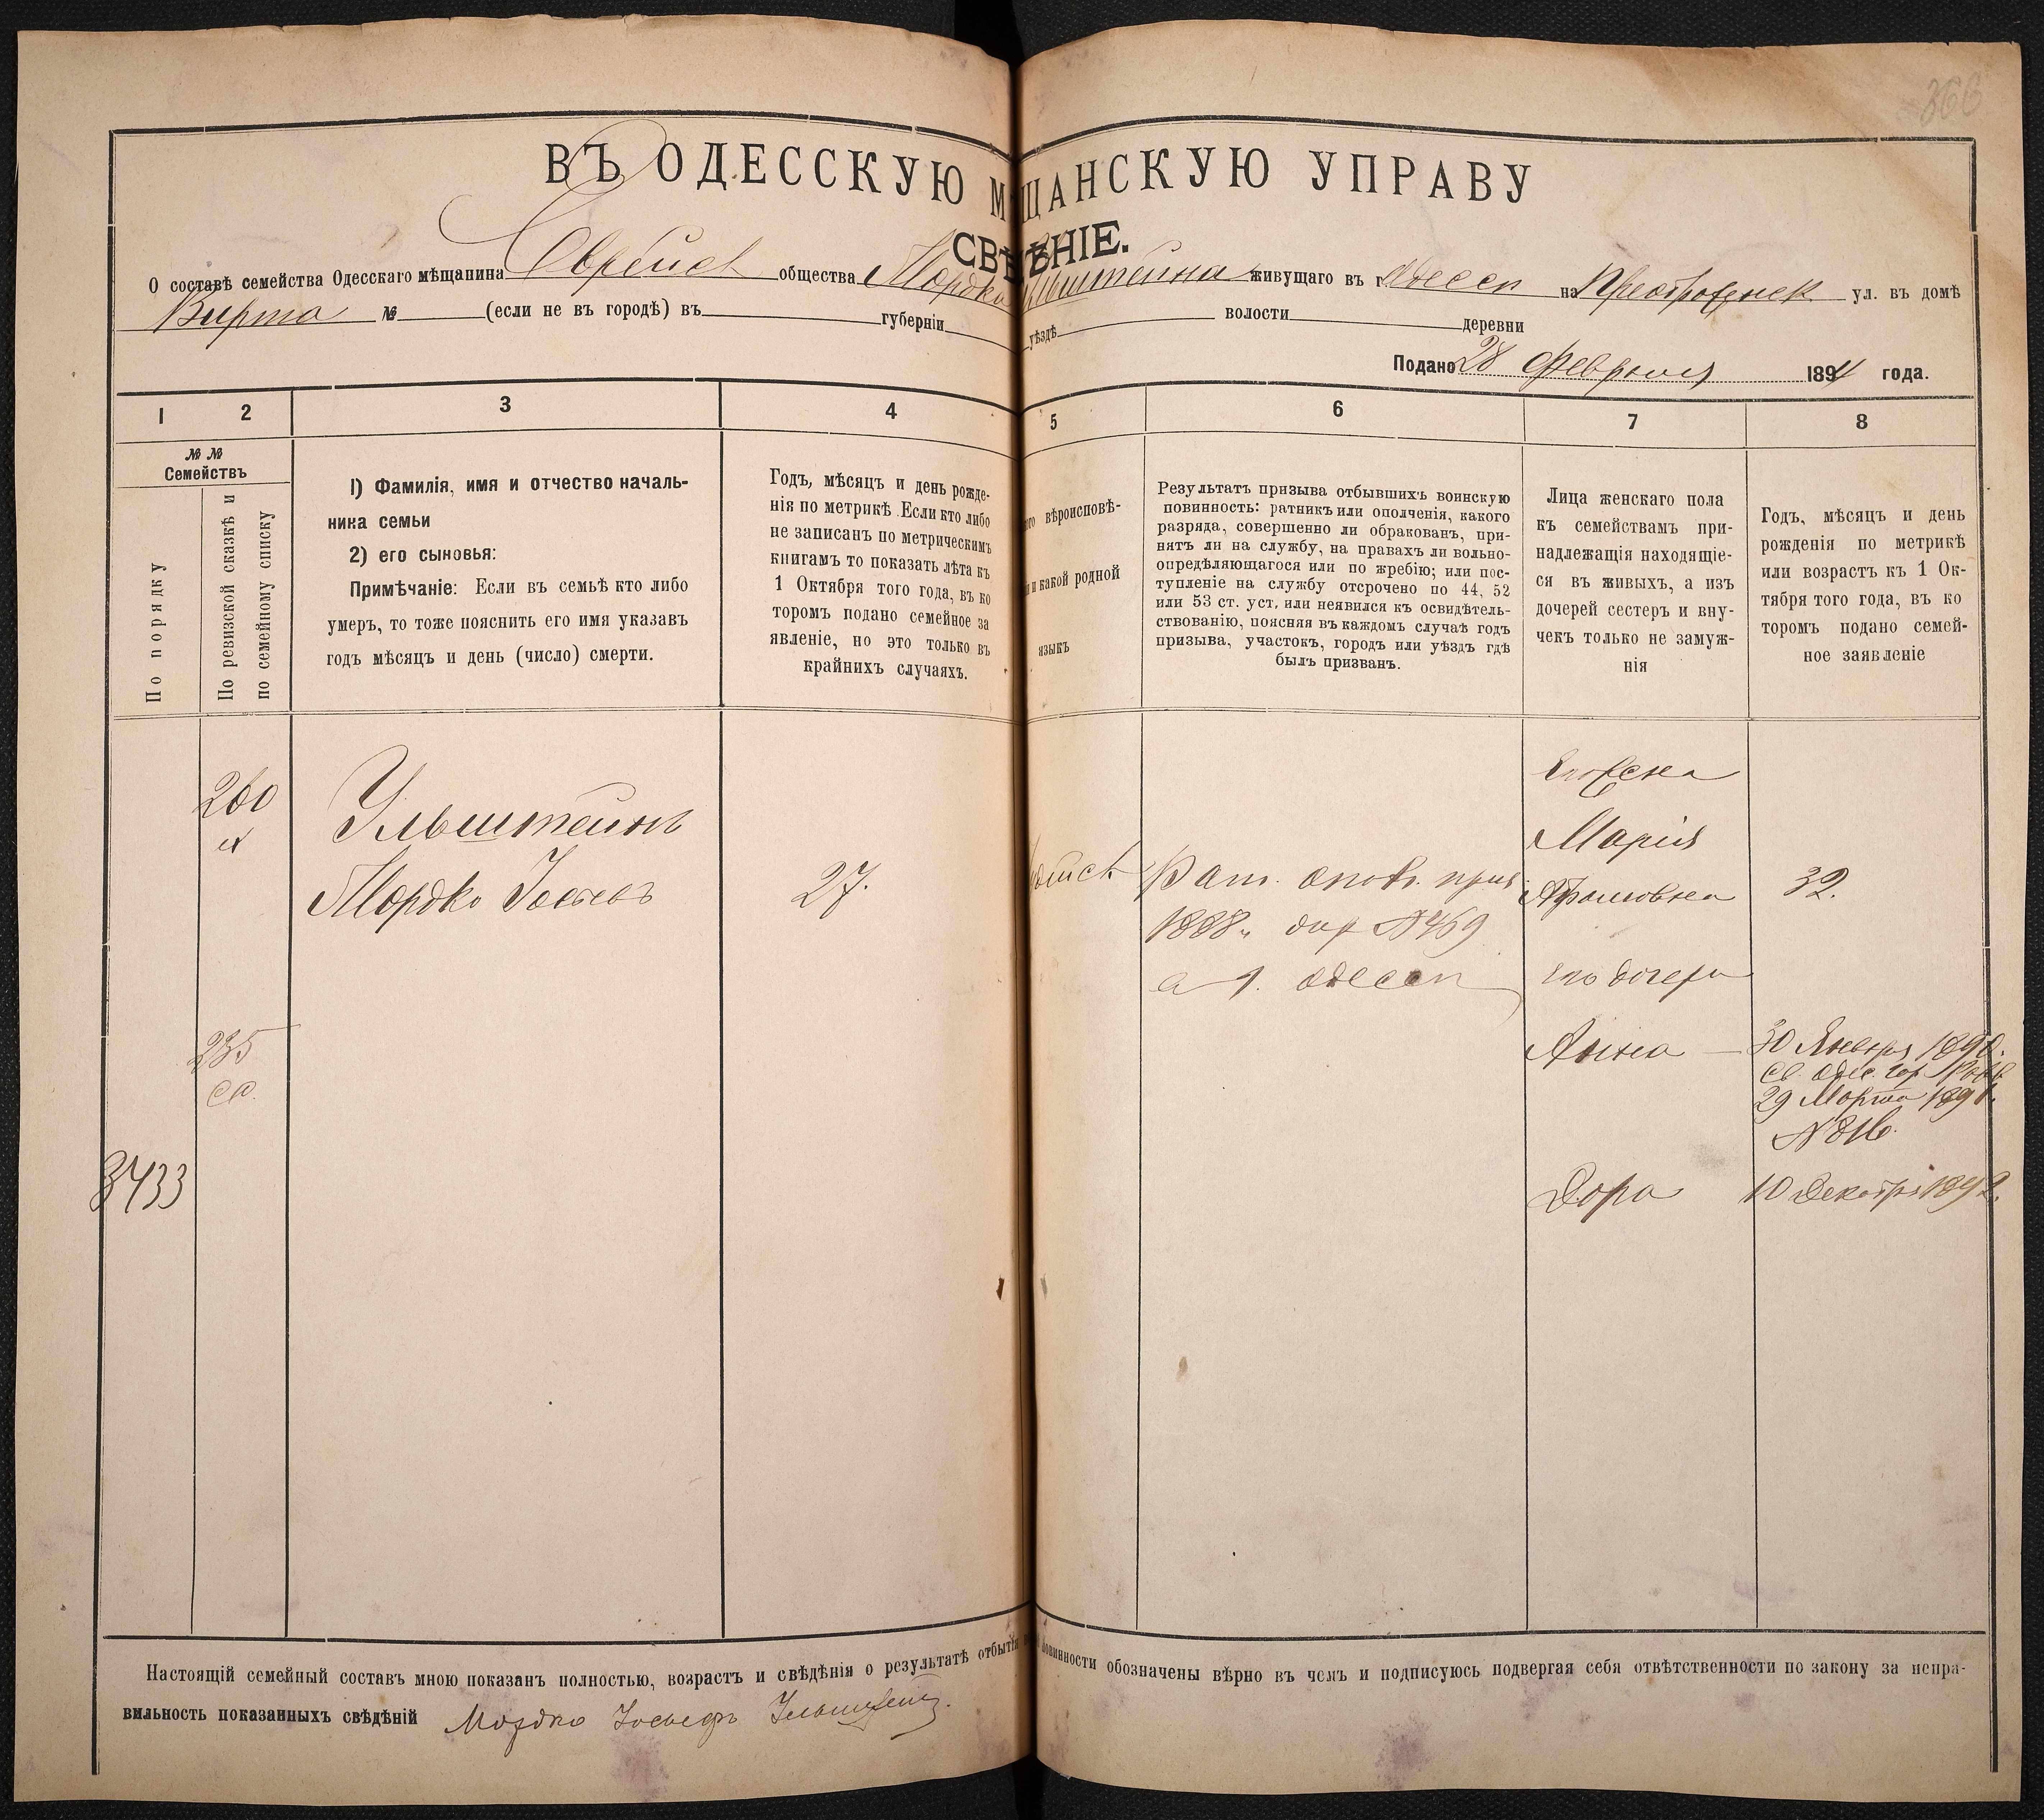 366
ВЪ ОДЕССКУЮ М ЩАНСКУЮ УПРАВУ
СВѢДѢНІЕ.
О составѣ семейства Одесскаго мѣщанина Еврейск общества Мордка Ульштейна живущаго въ г Одессѣ на Преображенск ул. въ домѣ
Вирта № (если не въ городѣ) въ губерніи уѣздѣ волости деревни
Подано 28 Февраля 1894 года.
1 2 3 4 5 6 7 8
№ №
Семействъ
По порядку
По ревизской сказкѣ и
по семейному списку
1) Фамилія, имя и отчество началь-
ника семьи
2) его сыновья:
Примѣчаніе: Если въ семьѣ кто либо
умеръ, то тоже пояснить его имя указавъ
годъ мѣсяцъ и день (число) смерти.
Годъ, мѣсяцъ и день рожде-
нія по метрикѣ. Если кто либо
не записанъ по метрическимъ
книгамъ то показать лѣта къ
1 Октября того года, въ ко
торомъ подано семейное за
явленіе, но это только въ
крайнихъ случаяхъ.
вѣроисповѣ-
и какой родной
языкъ
Результатъ призыва отбывшихъ воинскую
повинность: ратникъ или ополченія, какого
разряда, совершенно ли обракованъ, при-
нятъ ли на службу, на правахъ ли вольно-
опредѣляющагося или по жребію; или пос-
тупленіе на службу отсрочено по 44, 52
или 53 ст. уст, или неявился къ освидѣтель-
ствованію, поясняя въ каждомъ случаѣ годъ
призыва, участокъ, городъ или уѣздъ гдѣ
былъ призванъ.
Лица женскаго пола
къ семействамъ при-
надлежащія находящіе-
ся въ живыхъ, а изъ
дочерей сестеръ и вну-
чекъ только не замуж-
нія
Годъ, мѣсяцъ и день
рожденія по метрикѣ
или возрастъ къ 1 Ок-
тября того года, въ ко
торомъ подано семей-
ное заявленіе
260
Ульштейнъ
Мордко Іосіевъ
27.
Рат. опол. приз.
1888 г. № 469
Одессѣ
Его жена
Марія
Абрамовна 32.
его дочери
Анна — 30 Января 1890.
св. Одес. гор. Рав.
29 Марта 1891.
№ 816.
Дора 10 Декабря 1892.
235
сп.
3433
Настоящій семейный составъ мною показанъ полностью, возрастъ и свѣдѣнія о результатѣ отбытія повинности обозначены вѣрно въ чемъ и подписуюсь подвергая себя отвѣтственности по закону за непра-
вильность показанныхъ свѣдѣній Мордко Іосьефъ Ульштейнъ.